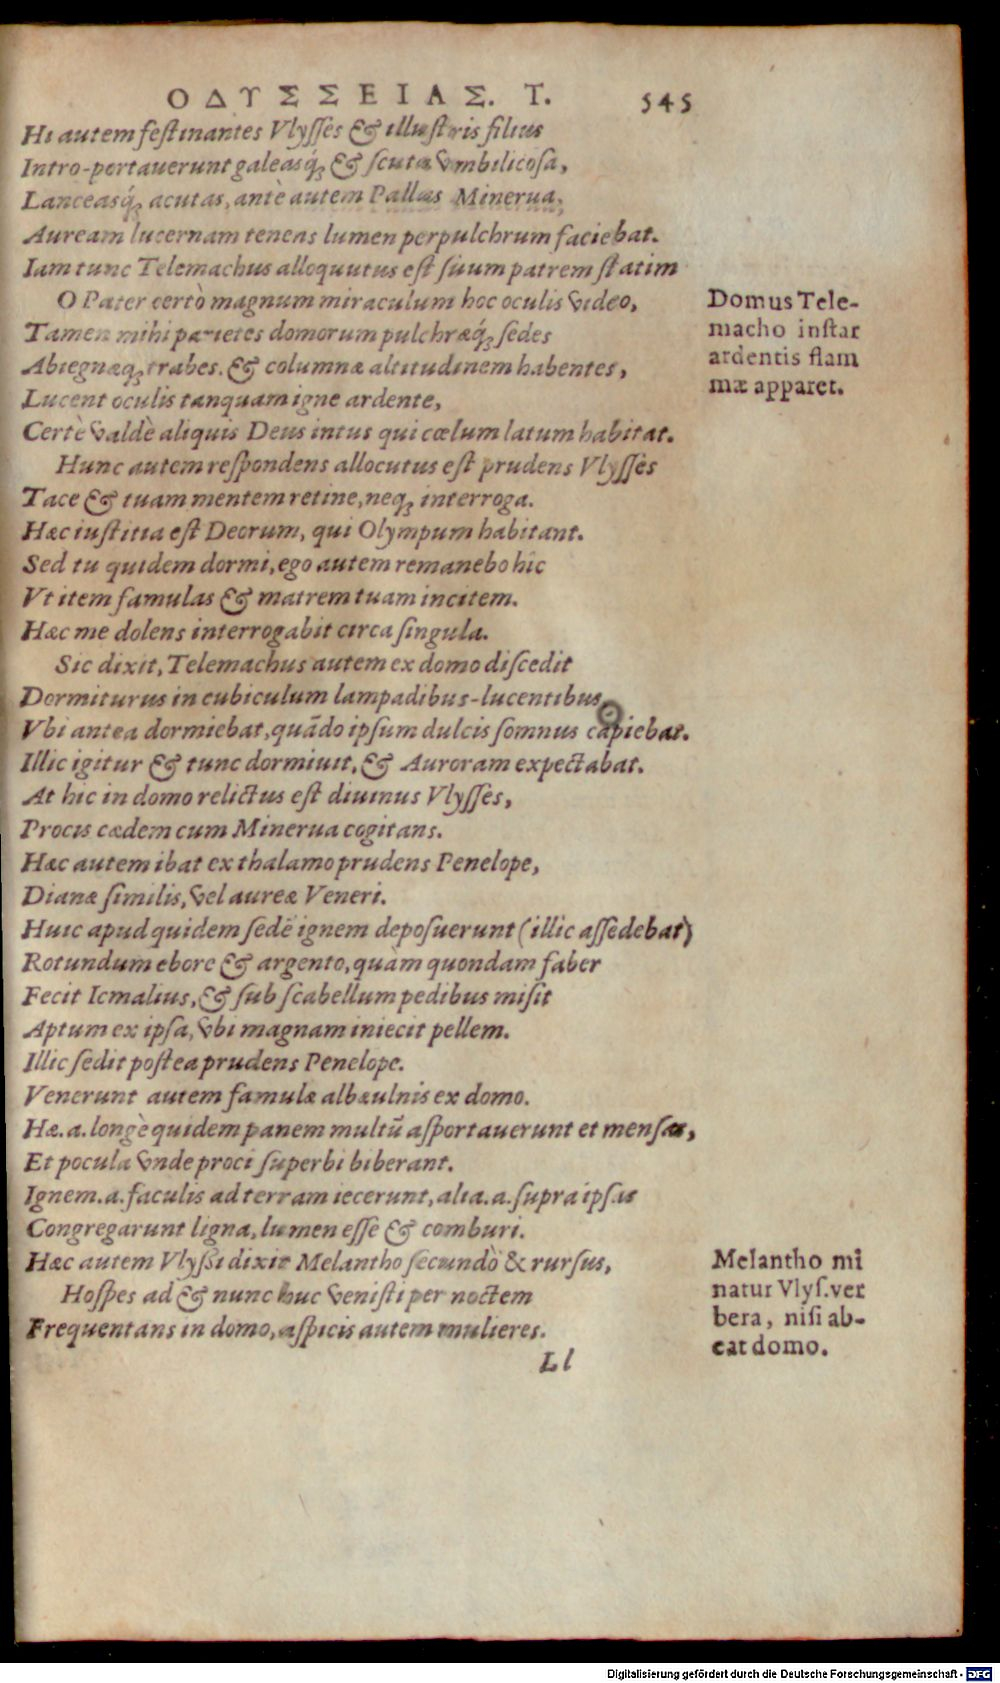 ΟΔΥΣΣΕΙΑΣ. Τ. 545
Hi autem festinantes Vlysses & illustris filius
Intro-portauerunt galeasq́; & scuta vmbilicosa,
Lanceasq́; acutas, antè autem Pallas Minerua,
Auream lucernam tenens lumen perpulchrum faciebat.
Iam tunc Telemachus alloquutus est suum patrem statim
O Pater certò magnum miraculum hoc oculis video,
Tamen mihi parietes domorum pulchræq́; sedes
Abiegnæq; trabes. & columnæ altitudinem habentes,
Lucent oculis tanquam igne ardente,
Certè valdè aliquis Deus intus qui cœlum latum habitat.
Hunc autem respondens allocutus est prudens Vlysses
Tace & tuam mentem retine, neq; interroga.
Hæc iustitia est Deorum, qui Olympum habitant.
Sed tu quidem dormi, ego autem remanebo hîc
Vt item famulas & matrem tuam incitem.
Hæc me dolens interrogabit circa singula.
Sic dixit, Telemachus autem ex domo discedit
Dormiturus in cubiculum lampadibus-lucentibus
Vbi antea dormiebat, quãdo ipsum dulcis somnus capiebat.
Illic igitur & tunc dormiuit, & Auroram expectabat.
At hic in domo relictus est diuinus Vlysses,
Procis cædem cum Minerua cogitans.
Hæc autem ibat ex thalamo prudens Penelope,
Dianæ similis, vel aureæ Veneri.
Huic apud quidem sedẽ ignem deposuerunt (illic assedebat)
Rotundum ebore & argento, quàm quondam faber
Fecit Icmalius, & sub scabellum pedibus misit
Aptum ex ipsa, vbi magnam iniecit pellem.
Illic sedit postea prudens Penelope.
Venerunt autem famulæ albæulnis ex domo.
Hæ. a. longè quidem panem multũ asportauerunt et mensas,
Et pocula vnde proci superbi biberant.
Ignem. a. faculis ad terram iecerunt, alia. a. supra ipsas
Congregarunt ligna, lumen esse & comburi.
Hæc autem Vlyssi dixit Melantho secundò & rursus,
Hospes ad & nunc huc venisti per noctem
Frequentans in domo, aspicis autem mulieres.
Ll
Domus Tele-
macho instar
ardentis flam
mæ apparet.
Melantho mi
natur Vlys. ver
bera, nisi ab-
eat domo.
Digitalisierung gefördert durch die Deutsche Forschungsgemeinschaft - DFG